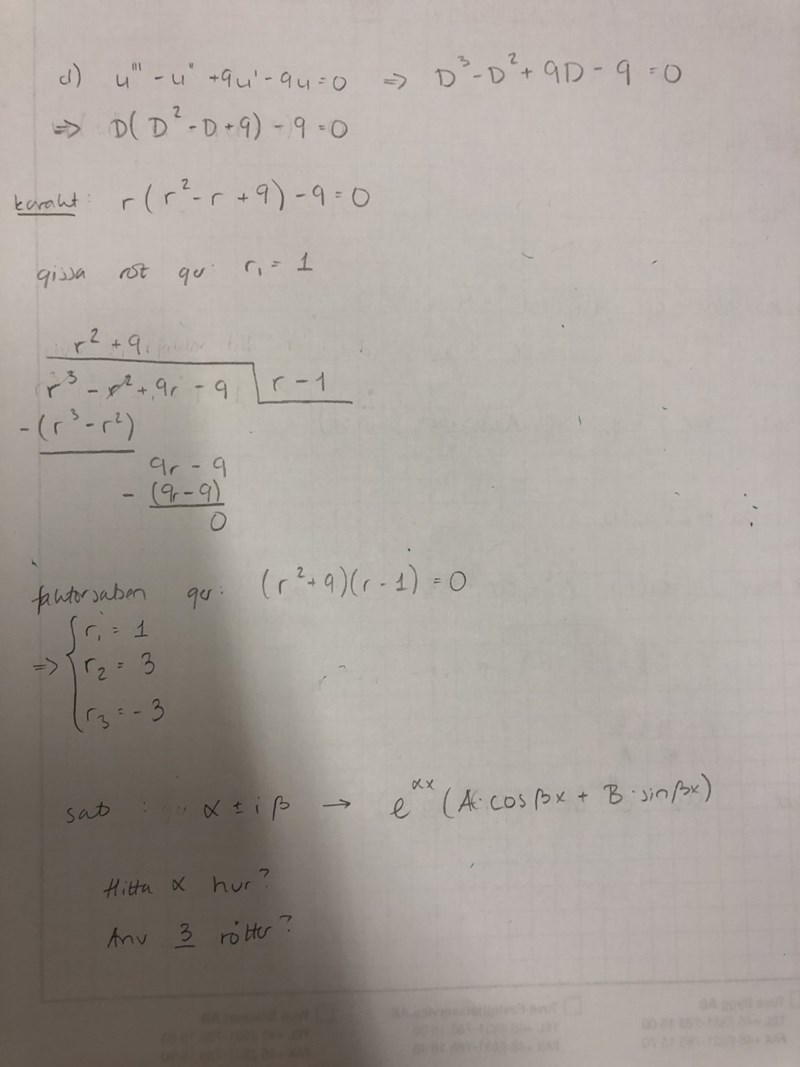 d) u''' - u'' + 9u' - 9u = 0 => D³ - D² + 9D - 9 = 0
=> D(D² - D + 9) - 9 = 0
karakt: r(r² - r + 9) - 9 = 0
gissa rot ger: r₁ = 1
r² + 9
r³ - r² + 9r - 9 r - 1
-(r³ - r²)
9r - 9
- (9r - 9)
0
faktorsatsen ger: (r² + 9)(r - 1) = 0
r₁ = 1
=> r₂ = 3
r₃ = -3
sats : α ± iβ → e^αx (A·cos βx + B·sin βx)
Hitta α hur?
Anv 3 rötter?